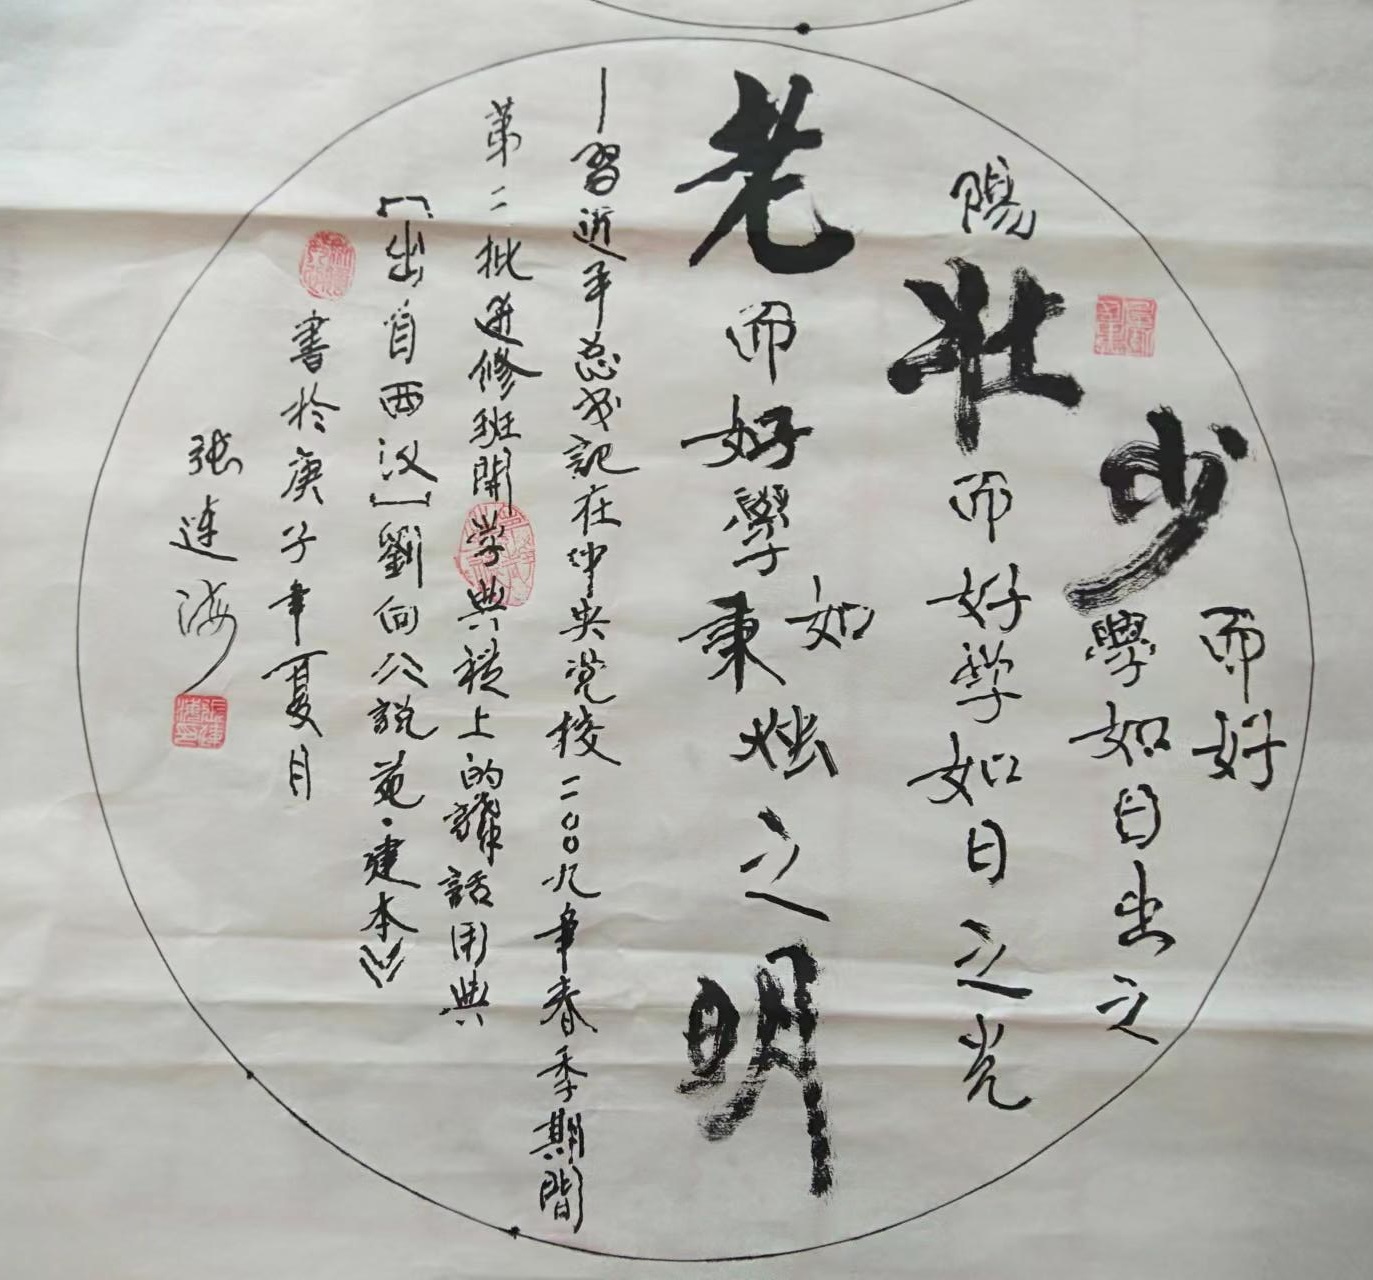 少
而好
學如日出之
陽
壯而好学如日之光
老而好學如
秉烛之明
—習近平总书記在中央党校二〇〇九年春季期間
第二批進修班開学典禮上的講話用典
[出自西汉]劉向《說苑·建本》
書於庚子年夏月
張連海